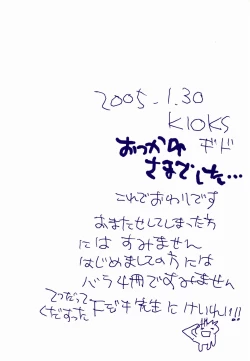 2005.1.30
KIOKS
ギド
おっかれ
さまでした…
これでおわりです
おまたせしてしまった方
には すみません
はじめましての方には
バラ4冊ですみません
てつだって
くださった
Fジキ先生にけいれい!!